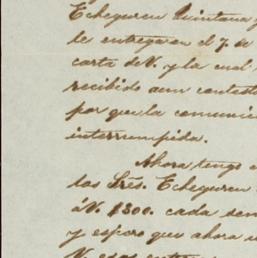 Echeguren Quintana y
be entrega en el 7. de
carta de V. y la cual
recibido aun contest
por que la comunic
interrumpida.
Ahora tengo
los Srés. Echeguren
á V. $300. cada
y espero que ahora
V.